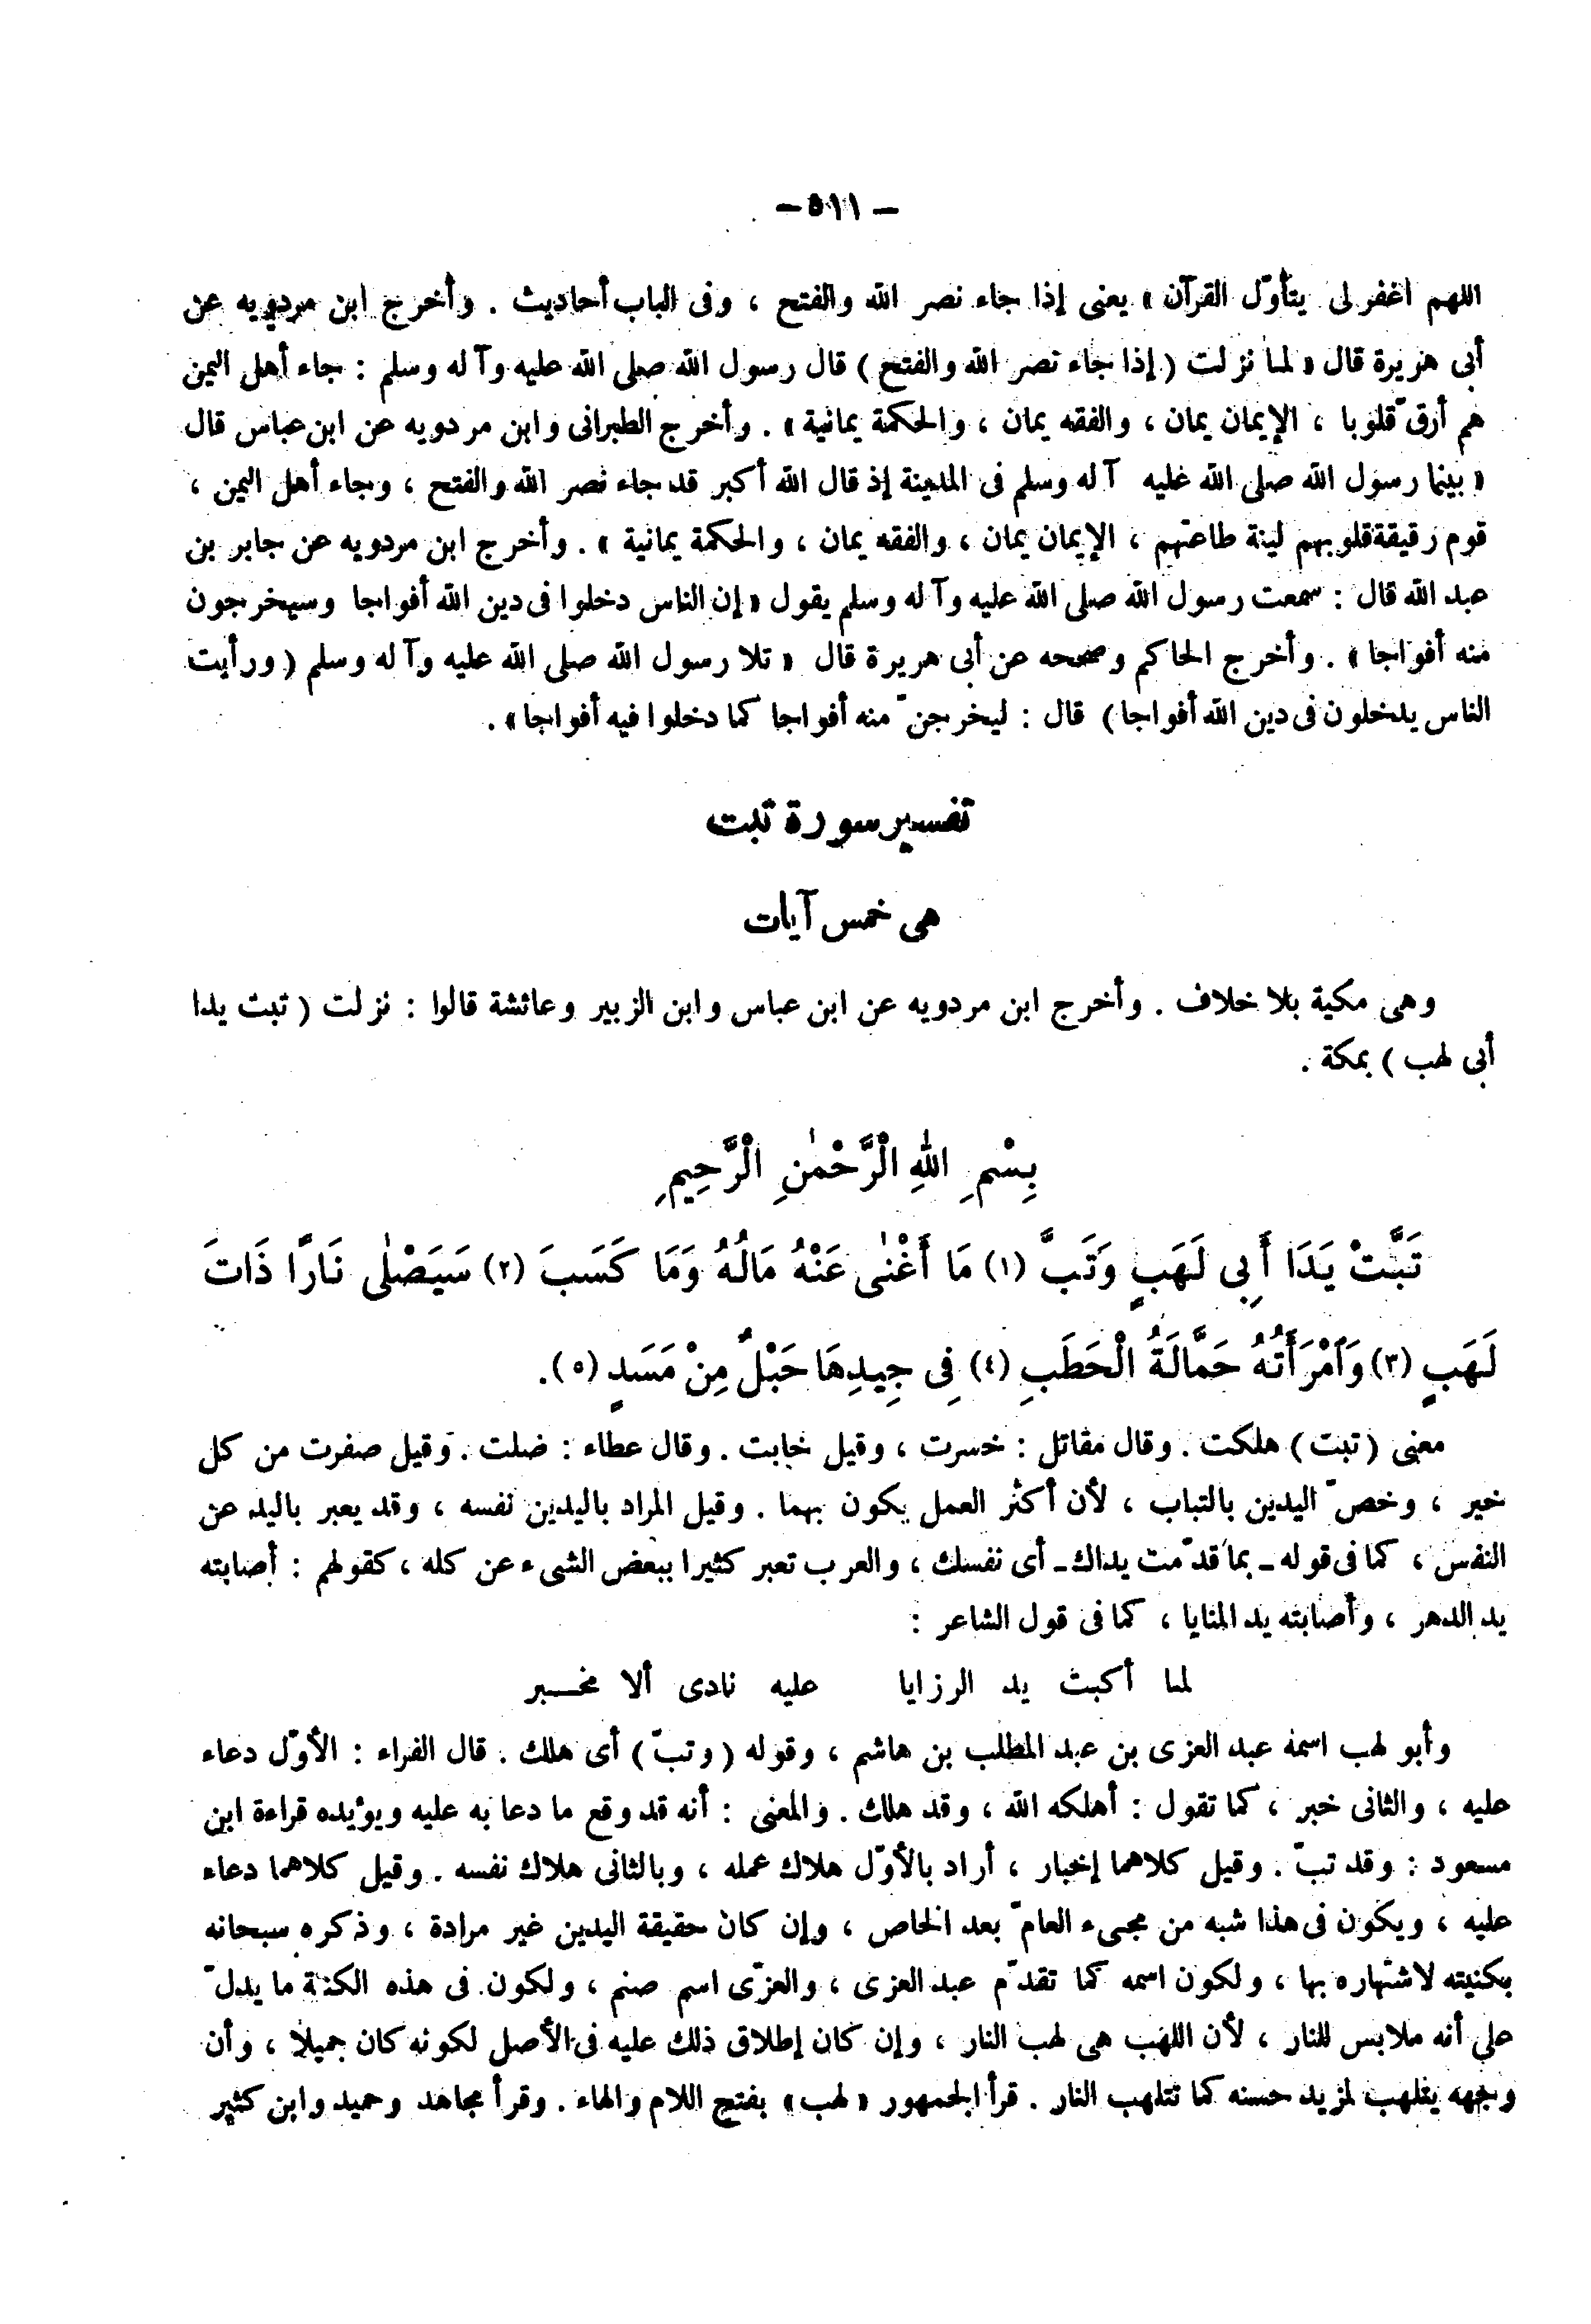 – ٥١١ –
اللهم اغفر لى يتأوّل القرآن » يعنى إذا جاء نصر الله والفتح ، وفى الباب أحاديث . وأخرج ابن مردويه عن
أبى هريرة قال « لما نزلت ( إذا جاء نصر الله والفتح ) قال رسول الله صلى الله عليه وآ له وسلم : جاء أهل اليمن
هم أرقّ قلوبا ، الإيمان يمان ، والفقه يمان ، والحكمة يمانية » . وأخرج الطبرانى وابن مردويه عن ابن عباس قال
« بينما رسول الله صلى الله عليه آ له وسلم فى المدينة إذ قال الله أكبر قد جاء نصر الله والفتح ، وجاء أهل اليمن ،
قوم رقيقة قلوبهم لينة طاعتهم ، الإيمان يمان ، والفقه يمان ، والحكمة يمانية » . وأخرج ابن مردويه عن جابر بن
عبد الله قال : سمعت رسول الله صلى الله عليه وآ له وسلم يقول « إن الناس دخلوا فى دين الله أفواجا وسيخرجون
منه أفواجا » . وأخرج الحاكم وصححه عن أبى هريرة قال « تلا رسول الله صلى الله عليه وآ له وسلم ( ورأيت
الناس يدخلون فى دين الله أفواجا ) قال : ليخرجنّ منه أفواجا كما دخلوا فيه أفواجا » .
تفسير سورة تبت
هى خمس آيات
وهى مكية بلا خلاف . وأخرج ابن مردويه عن ابن عباس وابن الزبير وعائشة قالوا : نزلت ( تبت يدا
أبى لهب ) بمكة .
بِسْمِ اللهِ الْرَّحْمٰنِ الْرَّحِيمِ
تَبَّتْ يَدَا أَبِى لَهَبٍ وَتَبَّ (١) مَا أَغْنٰى عَنْهُ مَالُهُ وَمَا كَسَبَ (٢) سَيَصْلٰى نَارًا ذَاتَ
لَهَبٍ (٣) وَٱمْرَأَتُهُ حَمَّالَةُ الْحَطَبِ (٤) فِى جِيدِهَا حَبْلٌ مِنْ مَسَدٍ (٥).
معنى ( تبت ) هلكت . وقال مقاتل : خسرت ، وقيل خابت . وقال عطاء : ضلت . وقيل صفرت من كل
خير ، وخصّ اليدين بالتباب ، لأن أكثر العمل يكون بهما . وقيل المراد باليدين نفسه ، وقد يعبر باليد عن
النفس ، كما فى قوله ـ بما قدّمت يداك ـ أى نفسك ، والعرب تعبر كثيرا ببعض الشىء عن كله ، كقولهم : أصابته
يد الدهر ، وأصابته يد المنايا ، كما فى قول الشاعر :
لما أكبت يد الرزايا عليه نادى ألا مخــبر
وأبو لهب اسمه عبد العزى بن عبد المطلب بن هاشم ، وقوله ( وتبّ ) أى هلك . قال الفراء : الأوّل دعاء
عليه ، والثانى خبر ، كما تقول : أهلكه الله ، وقد هلك . والمعنى : أنه قد وقع ما دعا به عليه ويؤيده قراءة ابن
مسعود : وقد تبّ . وقيل كلاهما إخبار ، أراد بالأوّل هلاك عمله ، وبالثانى هلاك نفسه . وقيل كلاهما دعاء
عليه ، ويكون فى هذا شبه من مجىء العامّ بعد الخاص ، وإن كان حقيقة اليدين غير مرادة ، وذكره سبحانه
بكنيته لاشتهاره بها ، ولكون اسمه كما تقدّم عبد العزى ، والعزّى اسم صنم ، ولكون فى هذه الكنية ما يدلّ
على أنه ملابس للنار ، لأن اللهب هى لهب النار ، وإن كان إطلاق ذلك عليه فى الأصل لكونه كان جميلا ، وأن
وجهه يتلهب لمزيد حسنه كما تتلهب النار . قرأ الجمهور « لهب » بفتح اللام والهاء . وقرأ مجاهد وحميد وابن كثير